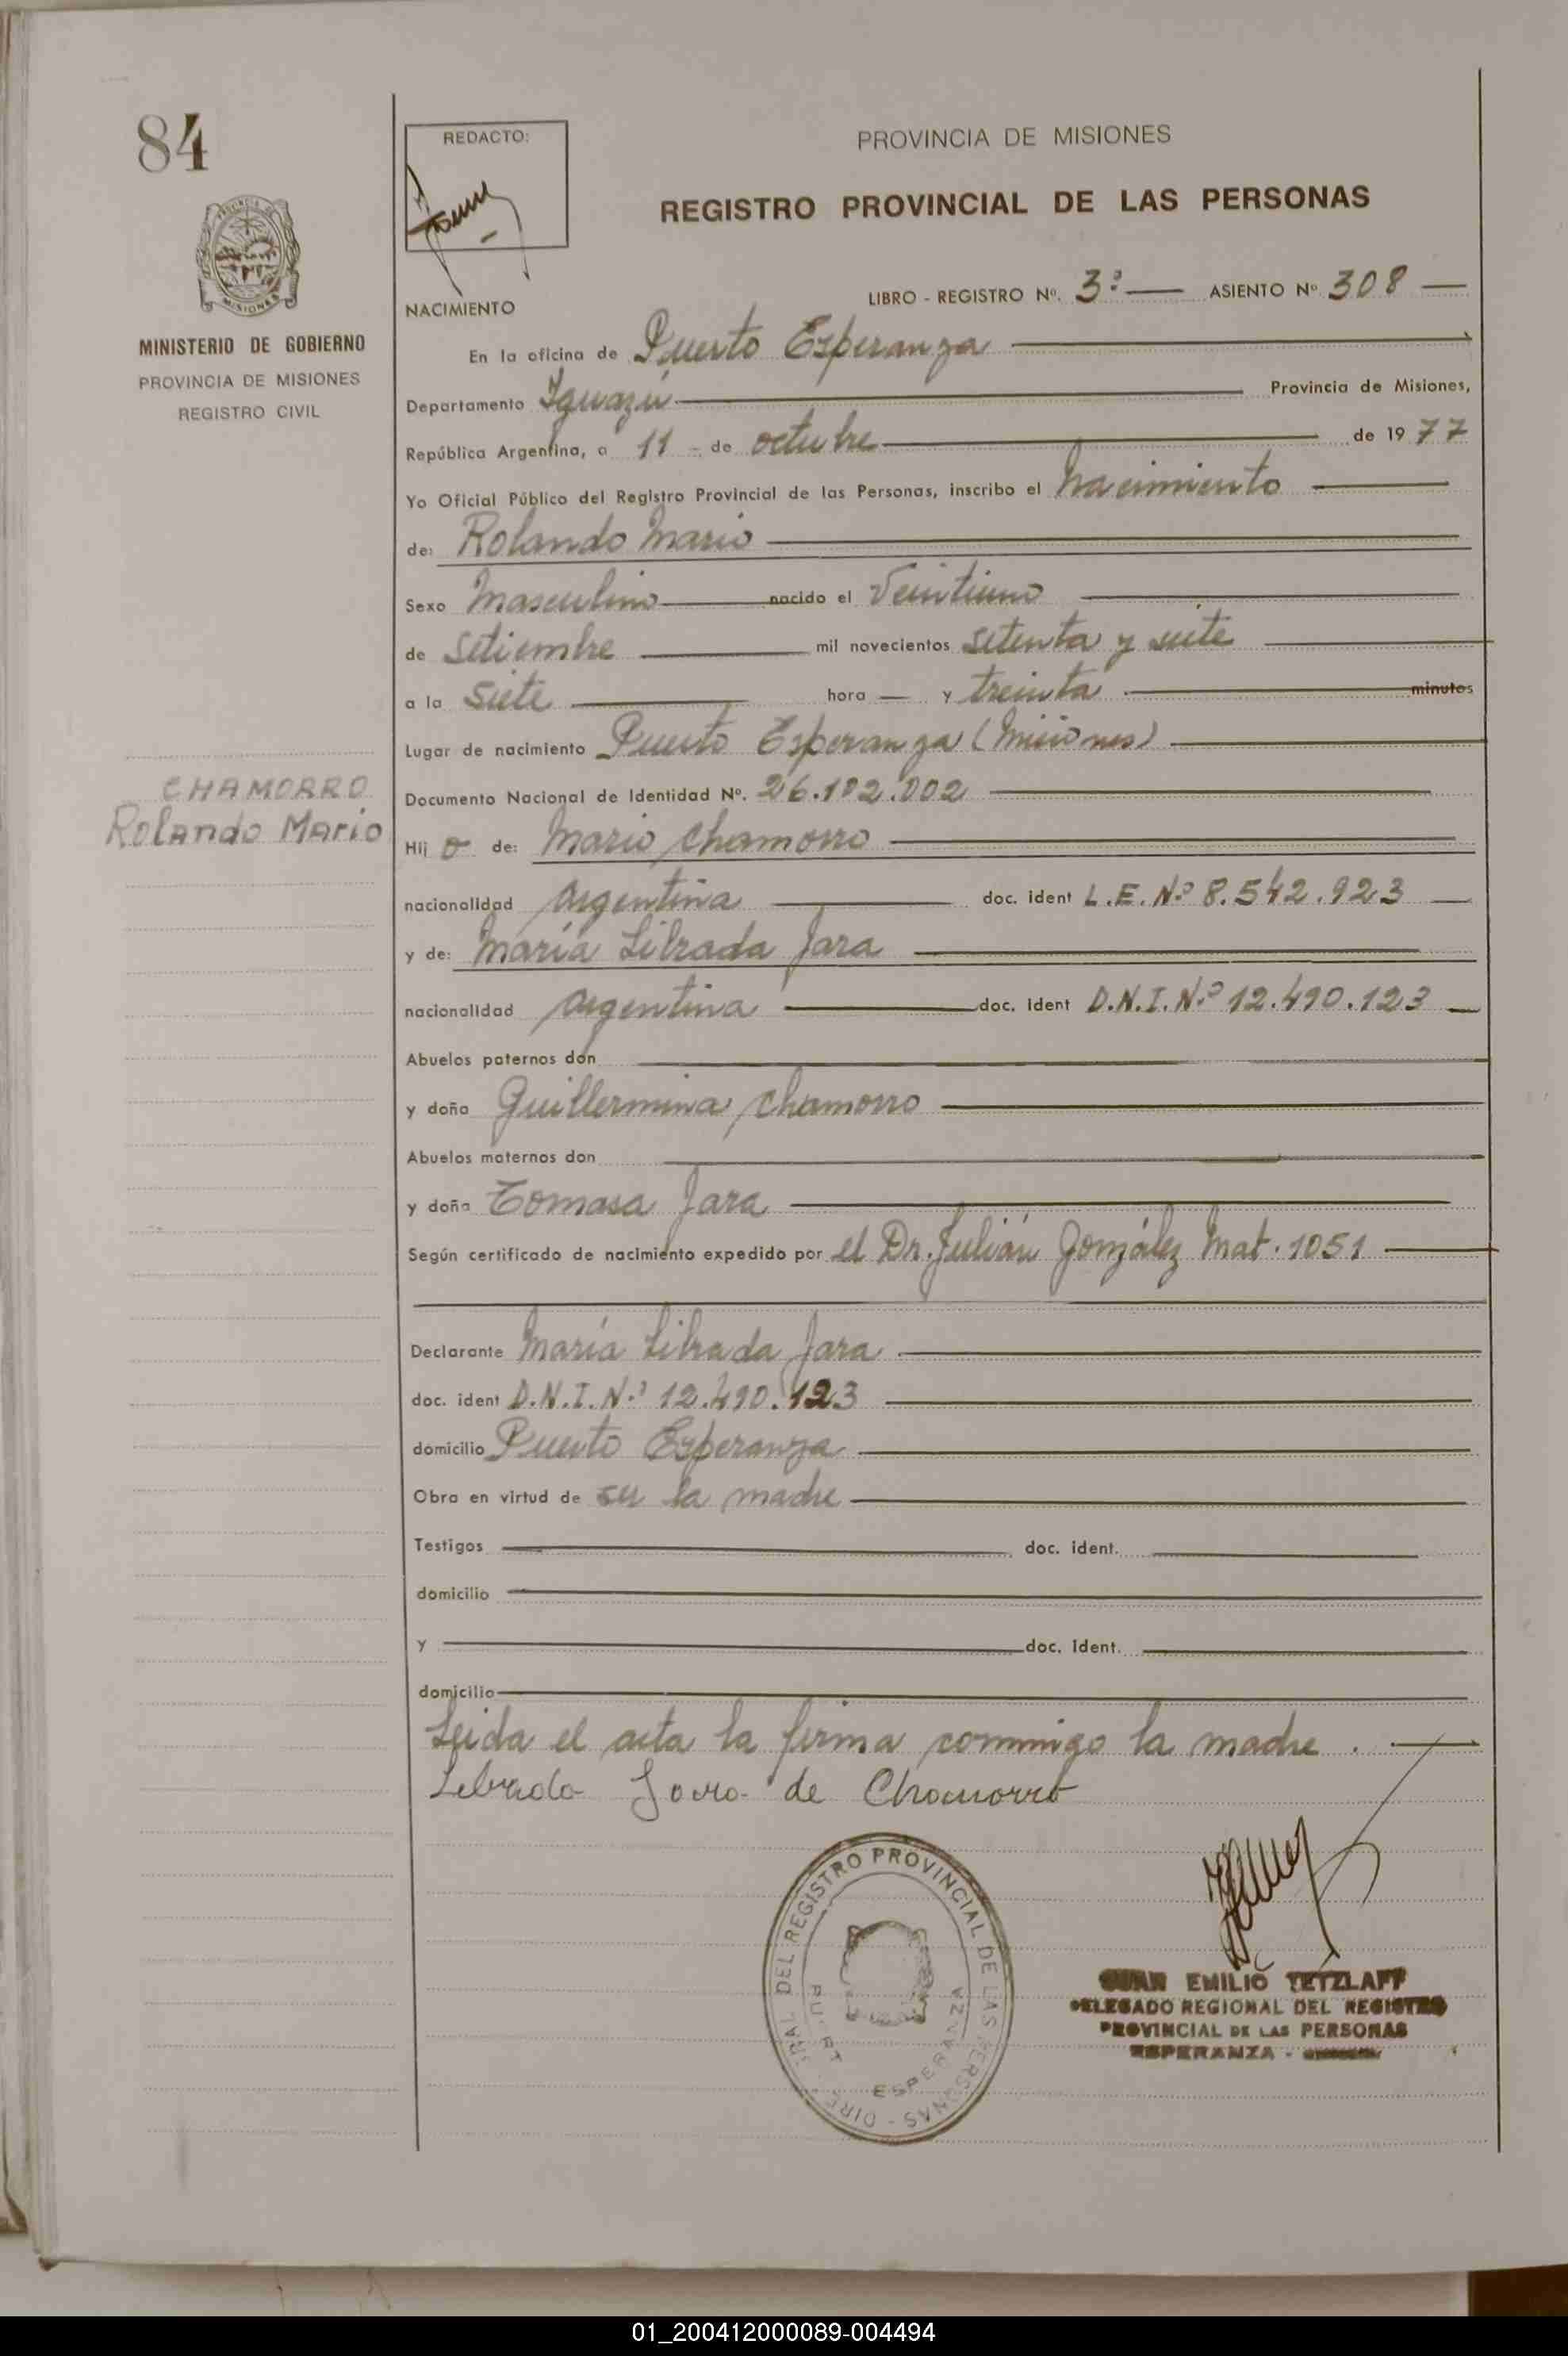 84
REDACTO:
PROVINCIA DE MISIONES
REGISTRO PROVINCIAL DE LAS PERSONAS
MISIONES
MINISTERIO DE GOBIERNO
PROVINCIA DE MISIONES
REGISTRO CIVIL
LIBRO - REGISTRO Nº. 3º — ASIENTO Nº 308 —
NACIMIENTO
En la oficina de Puerto Esperanza
Departamento Iguazú Provincia de Misiones,
República Argentina, a 11 - de octubre de 1977
Yo Oficial Público del Registro Provincial de las Personas, inscribo el nacimiento
de: Rolando Mario
Sexo Masculino nacido el Veintiuno
de Setiembre mil novecientos setenta y siete
a la Siete hora — y treinta minutos
Lugar de nacimiento Puerto Esperanza (Misiones)
CHAMORRO
Rolando Mario
Documento Nacional de Identidad Nº. 26.102.002
Hij o de: Mario Chamorro
nacionalidad Argentina doc. ident L.E. Nº 8.542.923
y de: María Librada Jara
nacionalidad Argentina doc. ident D.N.I. Nº 12.490.123
Abuelos paternos don
y doña Guillermina Chamorro
Abuelos maternos don
y doña Tomasa Jara
Según certificado de nacimiento expedido por el Dr. Julián González Mat. 1051
Declarante María Librada Jara
doc. ident D.N.I. Nº 12.490.123
domicilio Puerto Esperanza
Obra en virtud de ser la madre
Testigos doc. ident.
domicilio
y doc. ident.
domicilio
Leida el acta la firma conmigo la madre.
Librada Jara de Chamorro
DEL REGISTRO PROVINCIAL DE LAS PERSONAS -
ESPERANZA
JUAN EMILIO TETZLAFF
DELEGADO REGIONAL DEL REGISTRO
PROVINCIAL DE LAS PERSONAS
ESPERANZA -
01_200412000089-004494